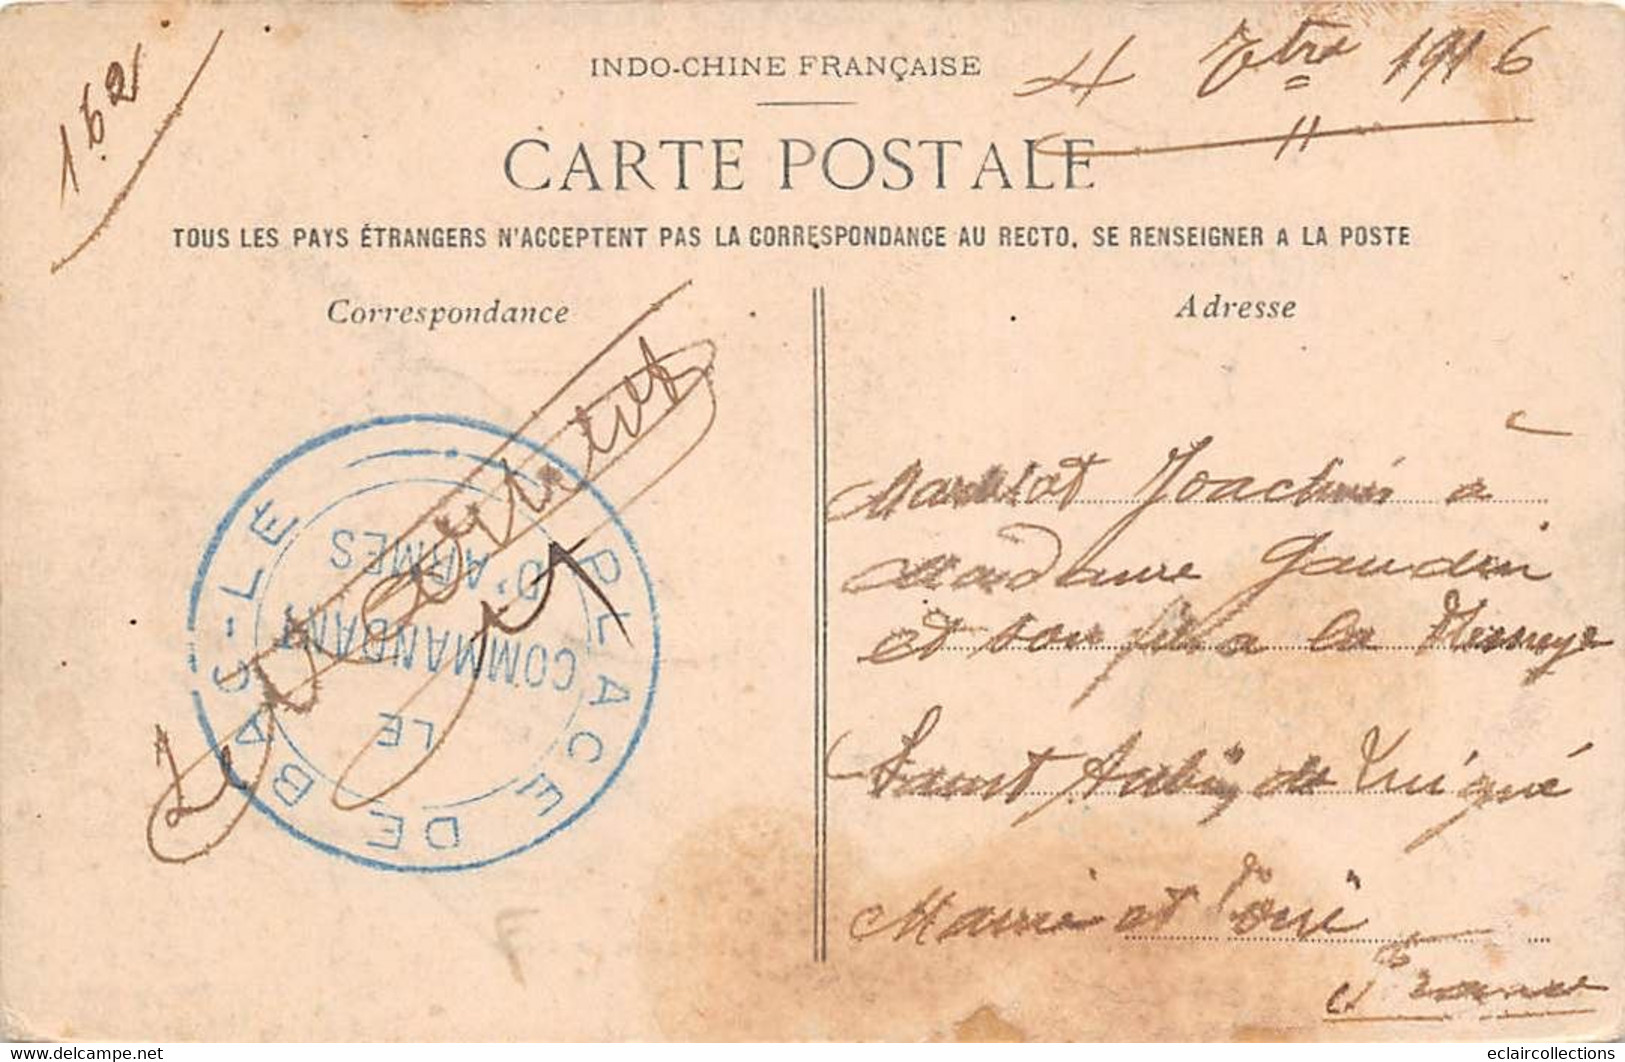 162
4 7bre 1916
INDO-CHINE FRANÇAISE
CARTE POSTALE
TOUS LES PAYS ÉTRANGERS N'ACCEPTENT PAS LA CORRESPONDANCE AU RECTO, SE RENSEIGNER A LA POSTE
Correspondance
Adresse
PLACE DE BAC-LE
LE
COMMANDANT
D'ARMES
Joachim à
madame Gaudin
et son fils a la
Saint Aubin de Luigné
Maine et Loire
France
7
eclaircollections